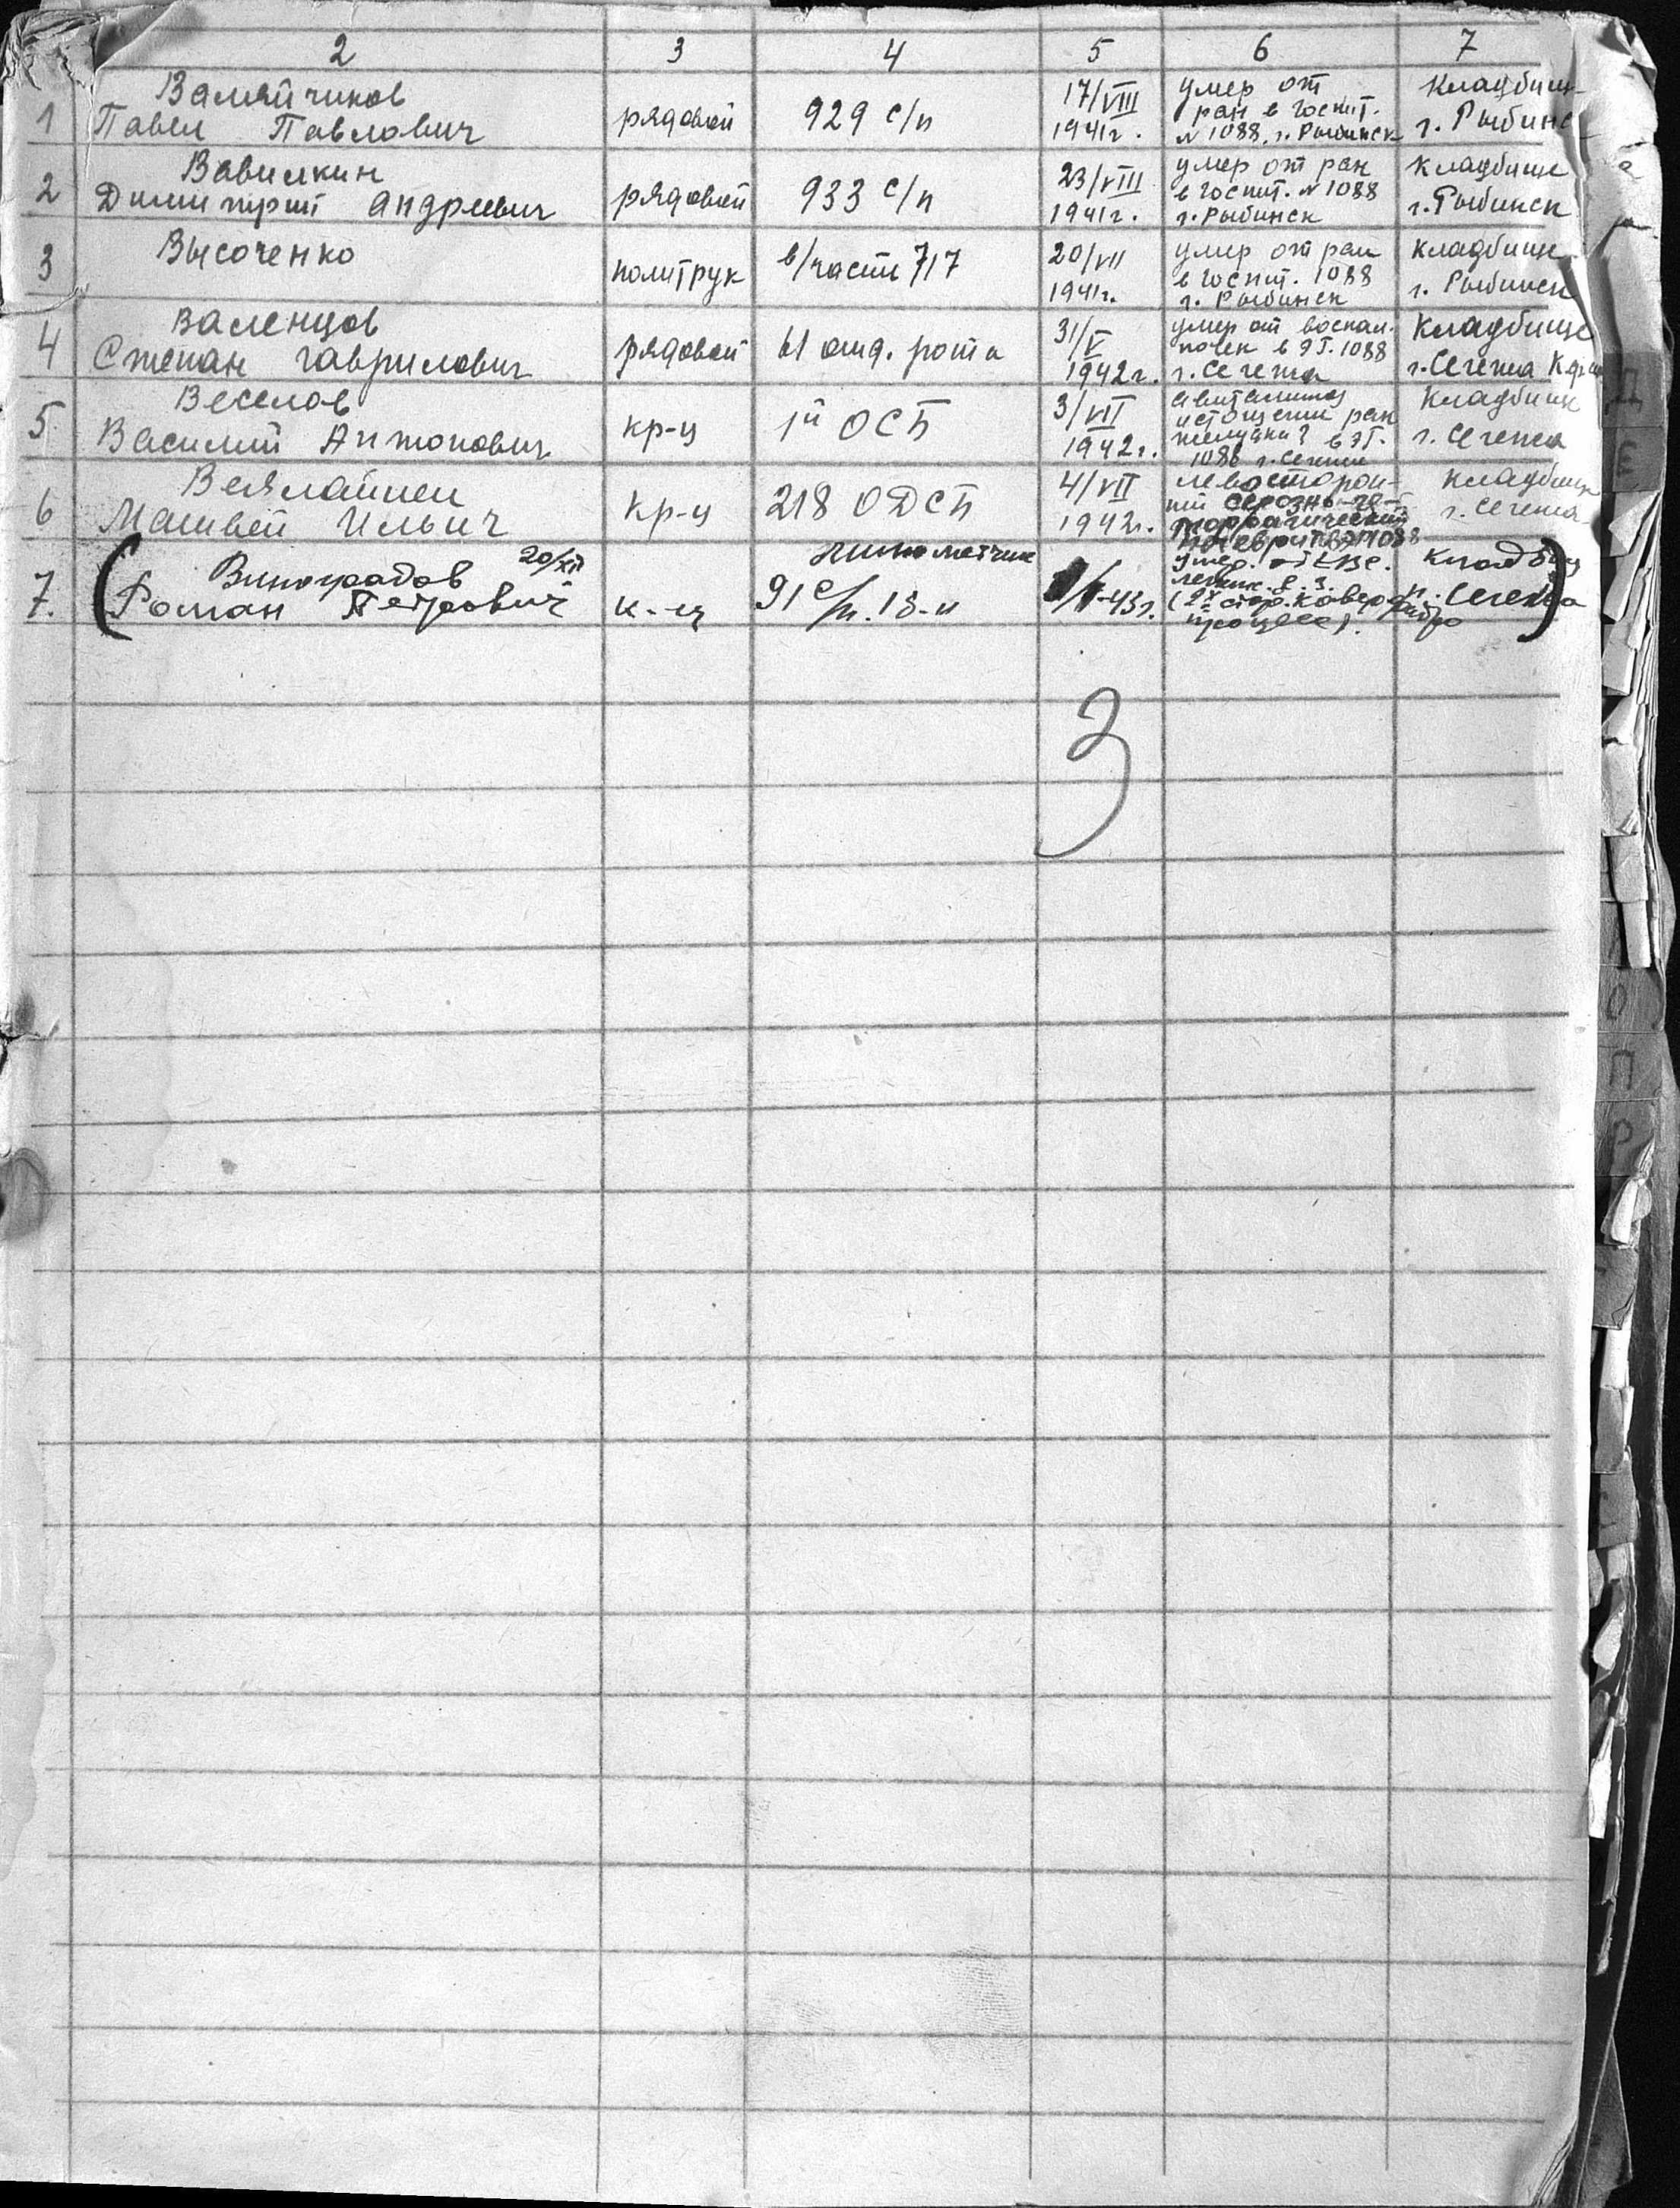 2 3 4 5 6 7
1 Валяйчиков
Павел Павлович
рядовой
929 с/п
17/VIII
1941г.
умер от
ран в госпит.
№ 1088, г. Рыбинск
Кладбище
г. Рыбинск
2 Вавилкин
Дмитрий Андреевич
рядовой
933 с/п
23/VIII
1941г.
умер от ран
в госпит. № 1088
г. Рыбинск
Кладбище
г. Рыбинск
3 Высоченко
политрук
в/части 717
20/VII
1941г.
умер от ран
в госпит. 1088
г. Рыбинск
Кладбище
г. Рыбинск
4 Валенцов
Степан Гаврилович
рядовой
61 отд. рота
31/V
1942г.
умер от воспал.
почек в ЭГ. 1088
г. Сегежа
Кладбище
г. Сегежа
5 Веселов
Василий Антонович
кр-ц
1й ОСБ
3/VII
1942г.
авитаминоз
истощении рак
желудка? в ЭГ.
1088 г. Сегежа
Кладбище
г. Сегежа
6 Веялайнен
Матвей Ильич
кр-ц
218 ОДСБ
4/VII
1942г.
левосторон-
ий серозно-ге-
моррагический
плеврит в ЭГ 1088
Кладбище
г. Сегежа
7. ( Виноградов 20/XII
Роман Петрович
к-ц
минометчик
91 с/п. 18-й
43г.
умер. от твс.
легких
процесс).
Кладбищ
Сегежа )
3
Д
Е
О
П
Р